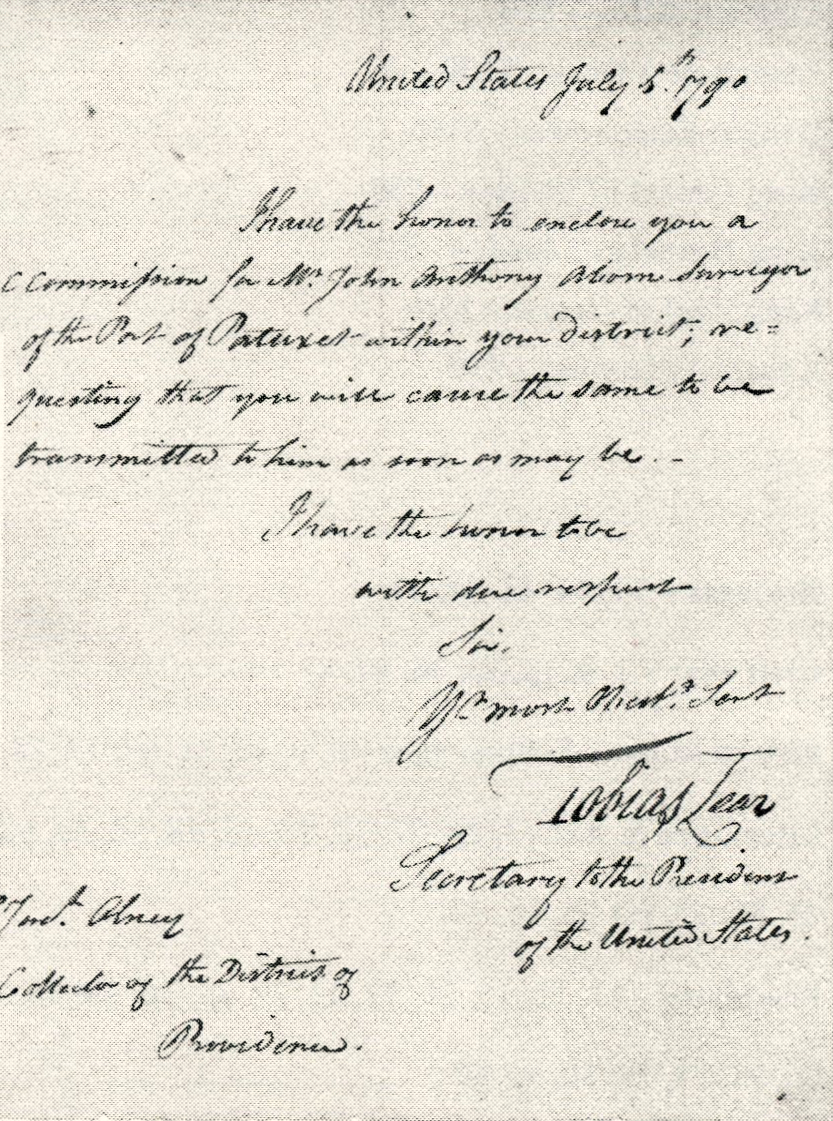 United States July 5.th 1790
I have the honor to enclose you a
Commission for Mr. John Anthony Aborn Surveyor
of the Port of Patuxet within your District; re=
questing that you will cause the same to be
transmitted to him as soon as may be. –
I have the honor to be
with due respect
Sir.
Yr. most Obedt. Servt
Tobias Lear
Secretary to the President
of the United States.
Jerh. Olney
Collector of the District of
Providence.